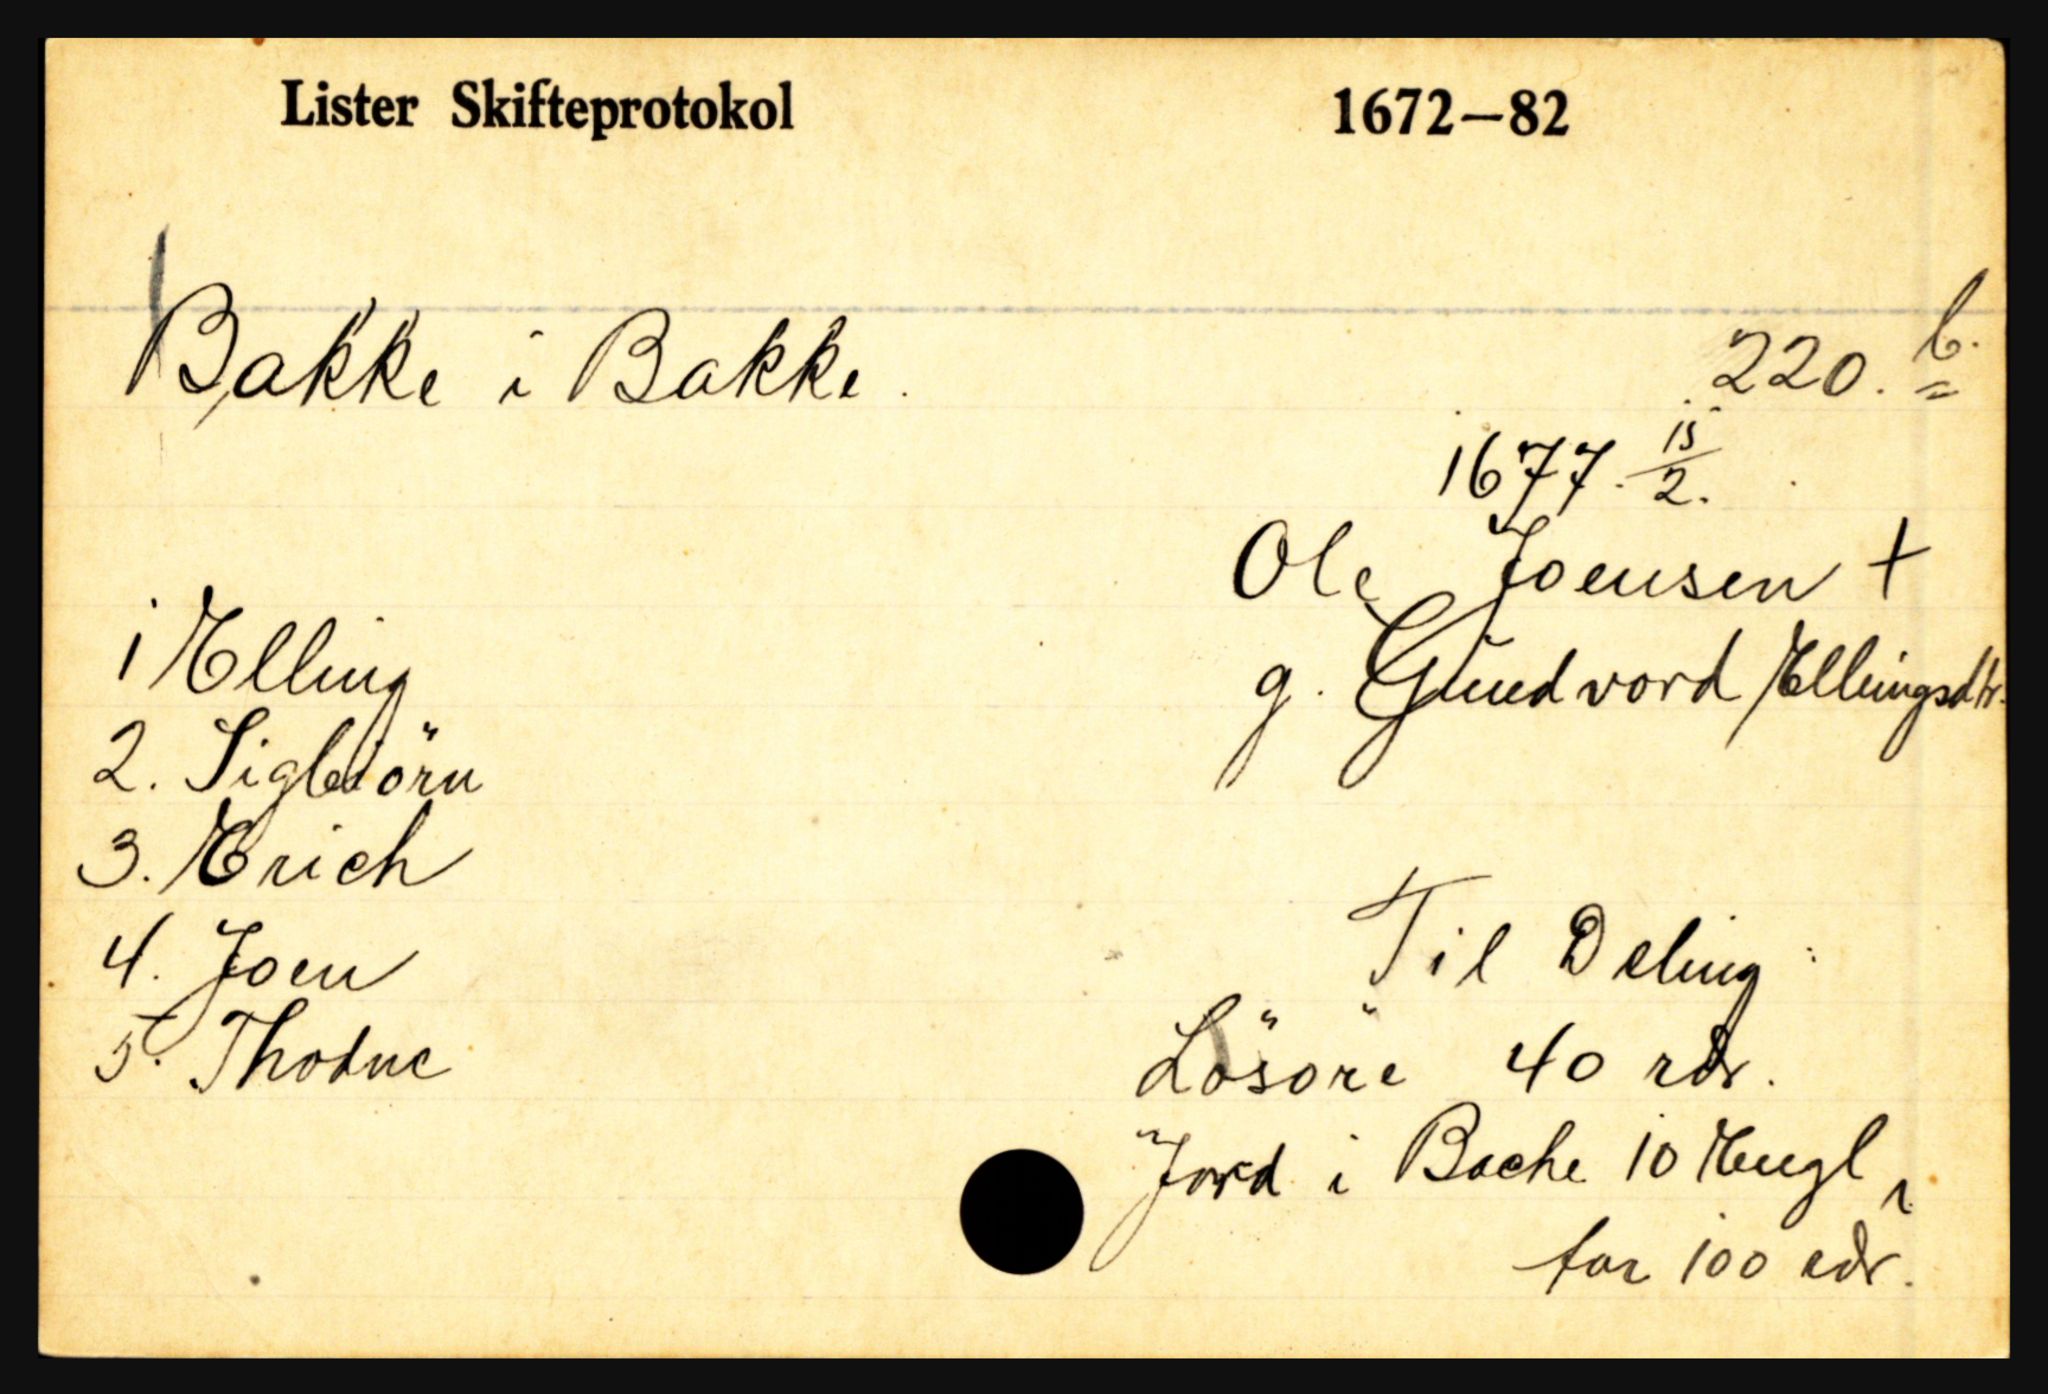 Lister Skifteprotokol 1672–82
Bakke i Bakke. 220. b.
1677. 15/2.
Ole Joensen +
g. Gundvord Ellingsdtr.
1 Elling
2. Sigbiörn
3. Erich
4. Joen
5. Thodne
Til Deling:
Lösöre 40 rdr.
Jord i Bache 10 Eugl
for 100 rdr.